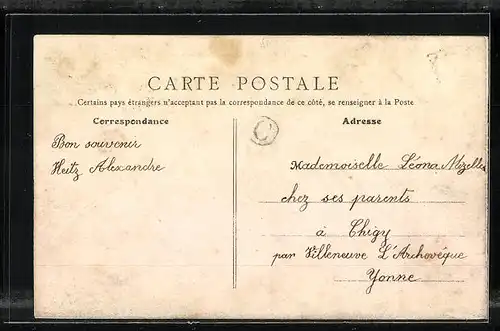 CARTE POSTALE
Certains pays étrangers n'acceptant pas la correspondance de ce côté, se renseigner à la Poste
Correspondance
Bon souvenir
Heitz Alexandre
Adresse
Mademoiselle Léona
chez ses parents
à Chigy
par Villeneuve L'Archevêque
Yonne